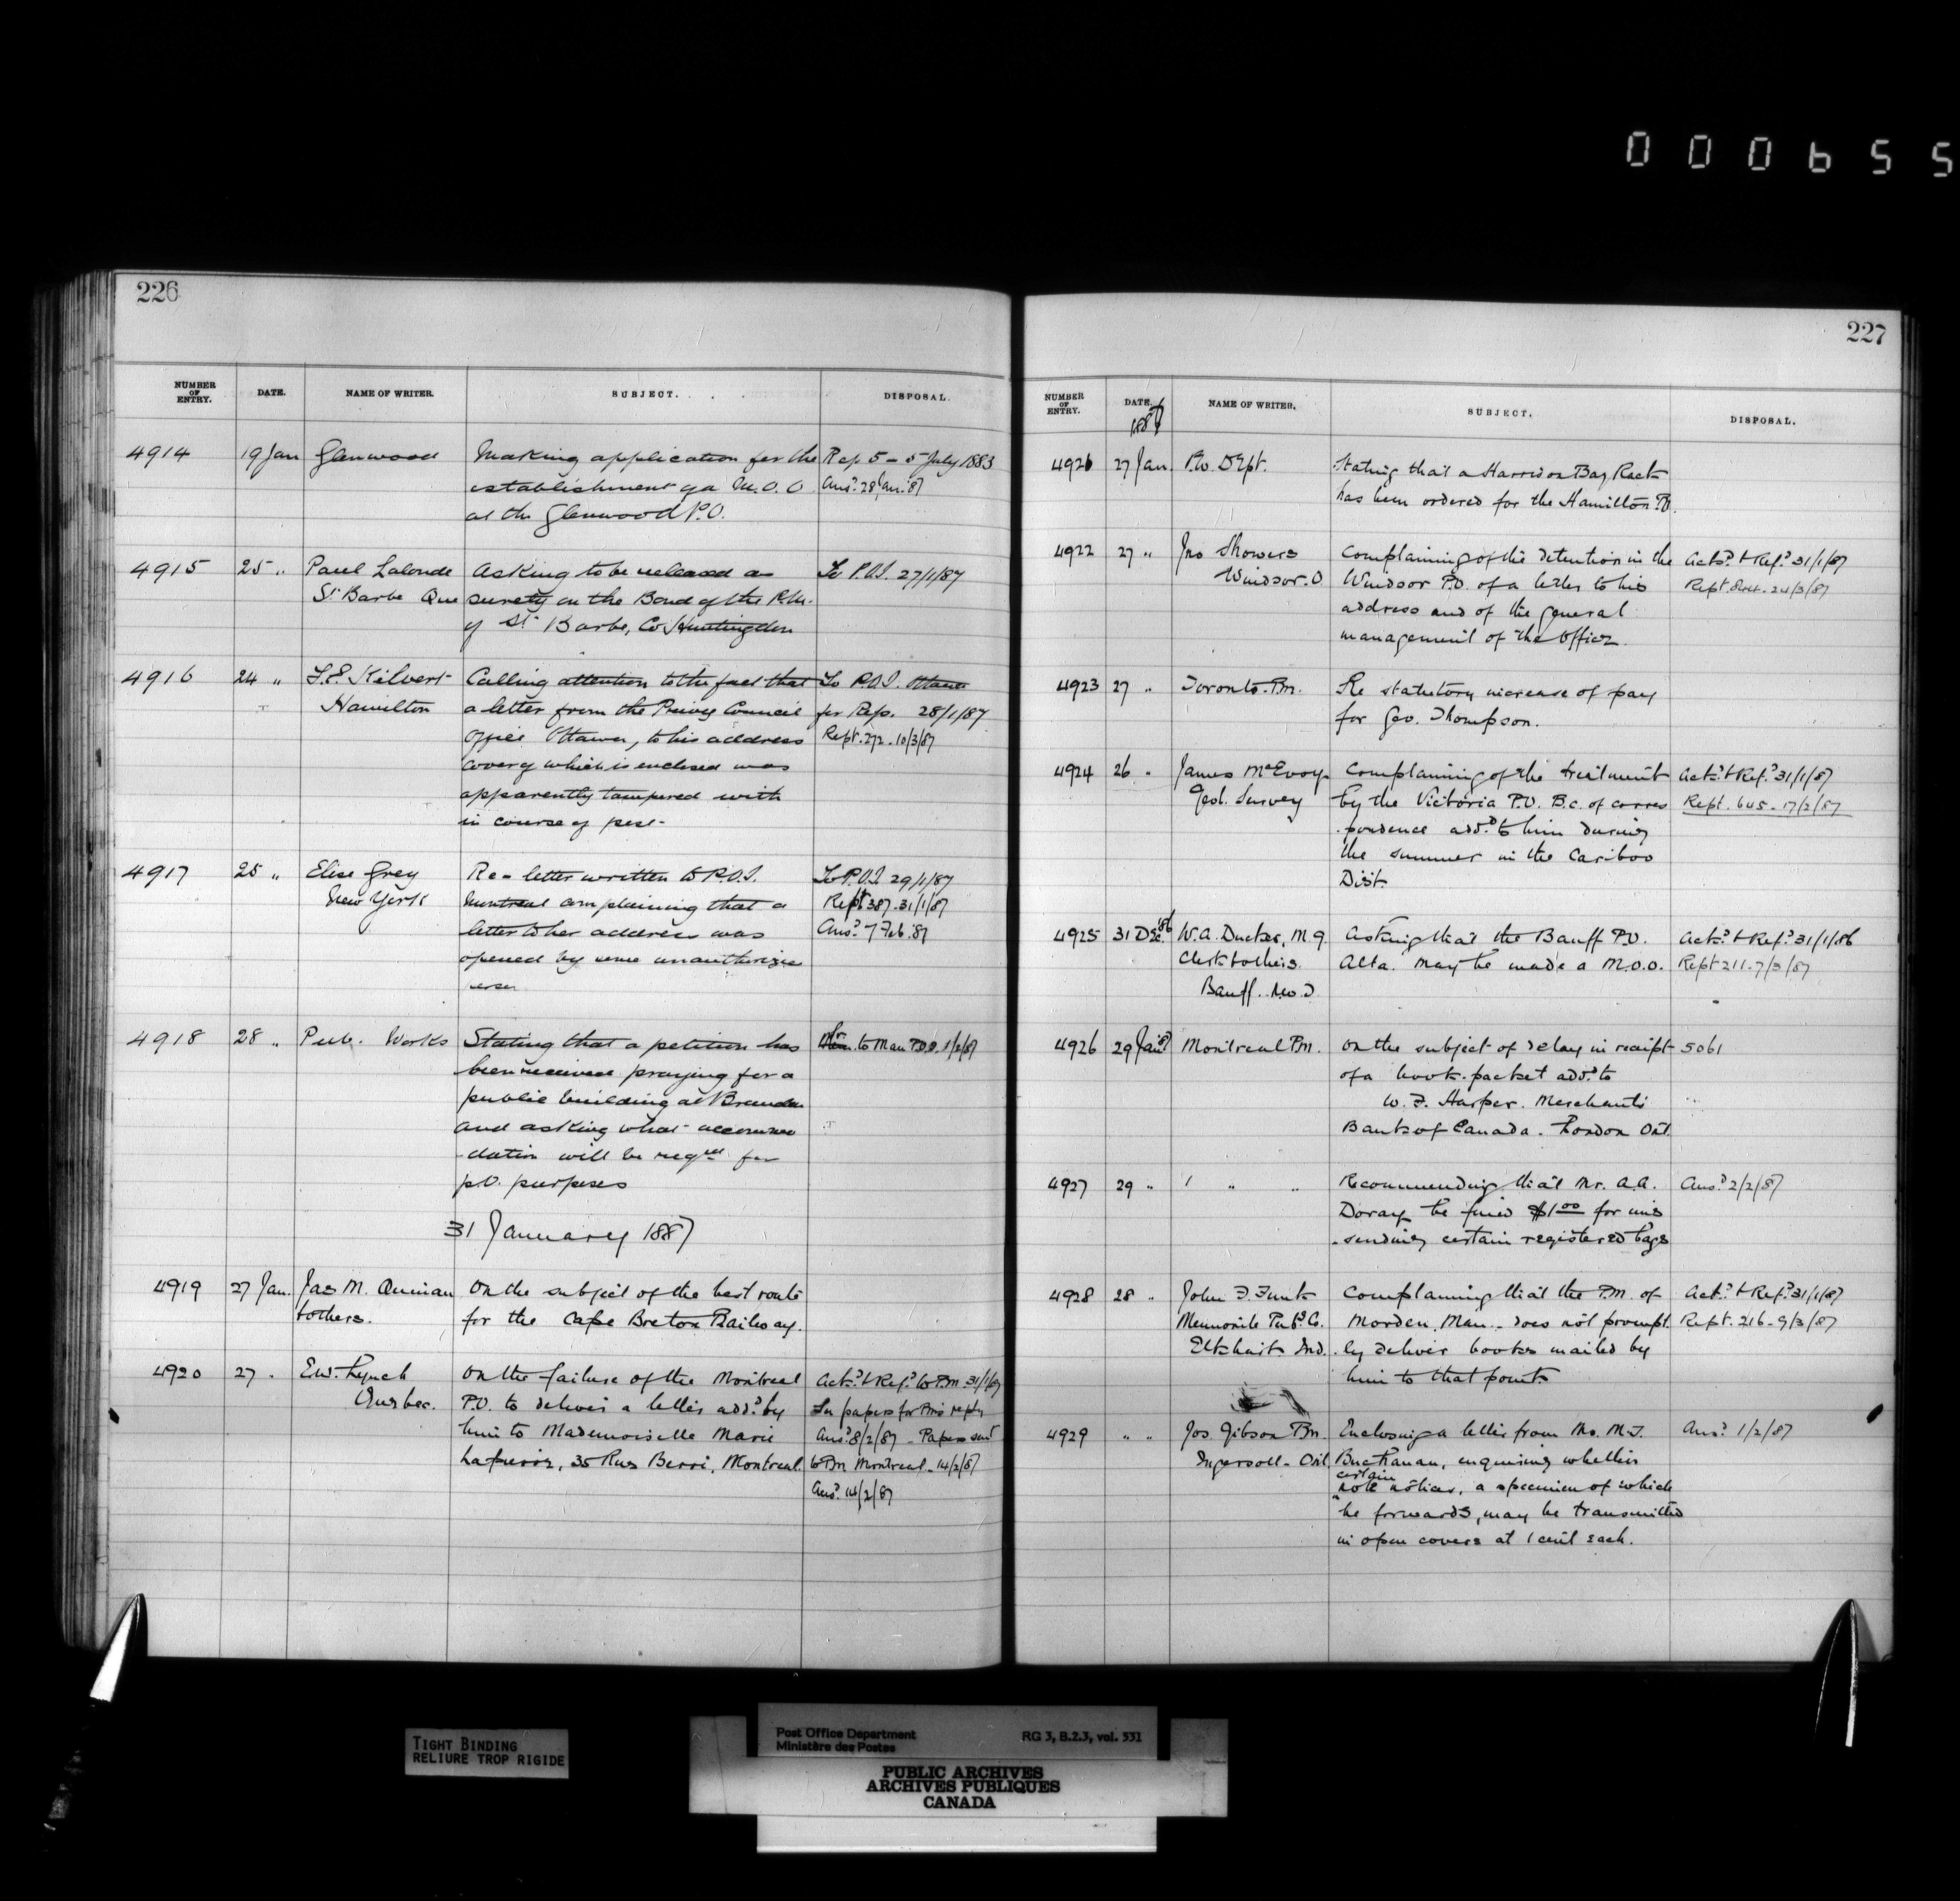 000655
226
NUMBER OF ENTRY. DATE. NAME OF WRITER. SUBJECT. DISPOSAL.
4914 19 Jan Glenwood Making application for the Rep 5 - 5 July 1883
establishment of a M.O.O Ans.d 28 Jan. 87
at the Glenwood P.O.
4915 25 " Paul Lalonde Asking to be released as To P.O.I. 27/1/87
St Barbe Que surety on the Bond of the P.M.
of St Barbe, Co Huntingdon
4916 24 " F.E. Kilvert Calling attention to the fact that To P.O.I. Ottawa
Hamilton a letter from the Privy Council for Rep. 28/1/87
Office Ottawa, to his address Rept. 272 - 10/3/87
cover of which is enclosed was
apparently tampered with
in course of post-
4917 25 " Elise Grey Re- letter written to P.O.I. To P.O.I. 29/1/87
New York Montreal complaining that a Rept 387 - 31/1/87
letter to her address was Ans.d 7 Feb. 87
opened by some unauthorize
person
4918 28 " Pub. Works Stating that a petition has to Man P.O.I. 1/2/87
been received praying for a
public building at Brandon
and asking what accommo
-dation will be reqred for
p.O. purposes
31 January 1887
4919 27 Jan. Jas M. Quinan On the subject of the best route
& others. for the Cape Breton Railway.
4920 27 " E.W. Lynch On the failure of the Montreal Ack.d & Ref.d to P.M. 31/1/87
Quebec. P.O. to deliver a letter add.d by In papers for Pm's reply
him to Mademoiselle Marie Ans.d 8/2/87 - Papers sent
35 Rue Berri, Montreal. to Pm Montreal - 14/2/87
Ans.d 14/2/87
227
NUMBER OF ENTRY. DATE. NAME OF WRITER. SUBJECT. DISPOSAL.
1887
4921 27 Jan. P.W. Dept. Stating that a Harrison Bag Rack
has been ordered for the Hamilton P.O.
4922 27 " Jno Showers Complaining of the detention in the Ack.d & Ref.d 31/1/87
Windsor. O Windsor P.O. of a letter to his Rept. 24/3/87
address and of the general
management of the Office.
4923 27 " Toronto. Pm. Re statutory increase of pay
for Geo. Thompson.
4924 26 " James McEvoy Complaining of the treatment Ack.d & Ref.d 31/1/87
Geol. Survey by the Victoria P.O. B.C. of corres Rept. 605 - 17/2/87
-pondence add.d to him during
the summer in the Cariboo
Dist.
4925 31 Dec. 86 W.A. Ducker, M.G. Asking that the Banff P.O. Ack.d & Ref.d 31/1/86
Clerk & others. Alta. may be made a M.O.O. Rept 211 - 7/3/87
Banff. N.W.T
4926 29 Jan. 87 Montreal Pm. On the subject of delay in receipt 5061
of a book-packet add.d to
W. F. Harper. Merchants
Bank of Canada. London Ont.
4927 29 " " " " Recommending that Mr. A.A. Ans.d 2/2/87
Doray be fined $1 00 for mis
-sending certain registered bags
4928 28 " John F. Funk Complaining that the P.M. of Ack.d & Ref.d 31/1/87
Mennonite Pub.g Co. Morden, Man. - does not prompt Rept. 216 - 9/3/87
Elkhart. Ind. -ly deliver books mailed by
him to that point.
4929 " " Jos. Gibson Pm. Enclosing a letter from Mr. M.J. Ans.d 1/2/87
Ingersoll - Ont. Buchanan, enquiring whether
certain
note notices, a specimen of which
he forwards, may be transmitted
in open covers at 1 cent each.
TIGHT BINDING
RELIURE TROP RIGIDE
Post Office Department RG 3, B.2.3, vol. 531
Ministère des Postes
PUBLIC ARCHIVES
ARCHIVES PUBLIQUES
CANADA